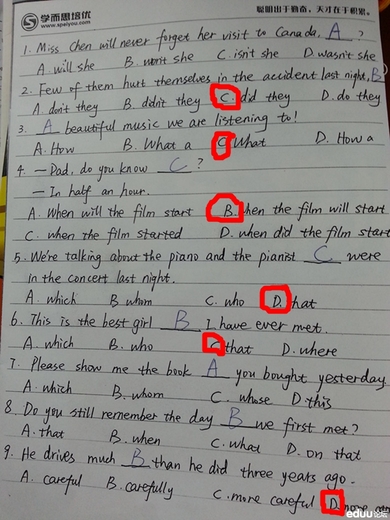 学而思培优
www.speiyou.com
聪明出于勤奋,天才在于积累。
1. Miss Chen will never forget her visit to Canada, A ?
A. will she B. won't she C. isn't she D. wasn't she
2. Few of them hurt themselves in the accident last night, B
A. don't they B. didn't they C. did they D. do they
3. A beautiful music we are listening to!
A. How B. What a C. What D. How a
4. — Dad, do you know C ?
— In half an hour.
A. When will the film start B. when the film will start
C. when the film started D. when did the film start
5. We're talking about the piano and the pianist C were
in the concert last night.
A. which B. whom C. who D. that
6. This is the best girl B I have ever met.
A. which B. who C. that D. where
7. Please show me the book A you bought yesterday
A. which B. whom C. whose D. this
8. Do you still remember the day B we first met?
A. that B. when C. what D. on that
9. He drives much B than he did three years ago.
A. careful B. carefully C. more careful D. more